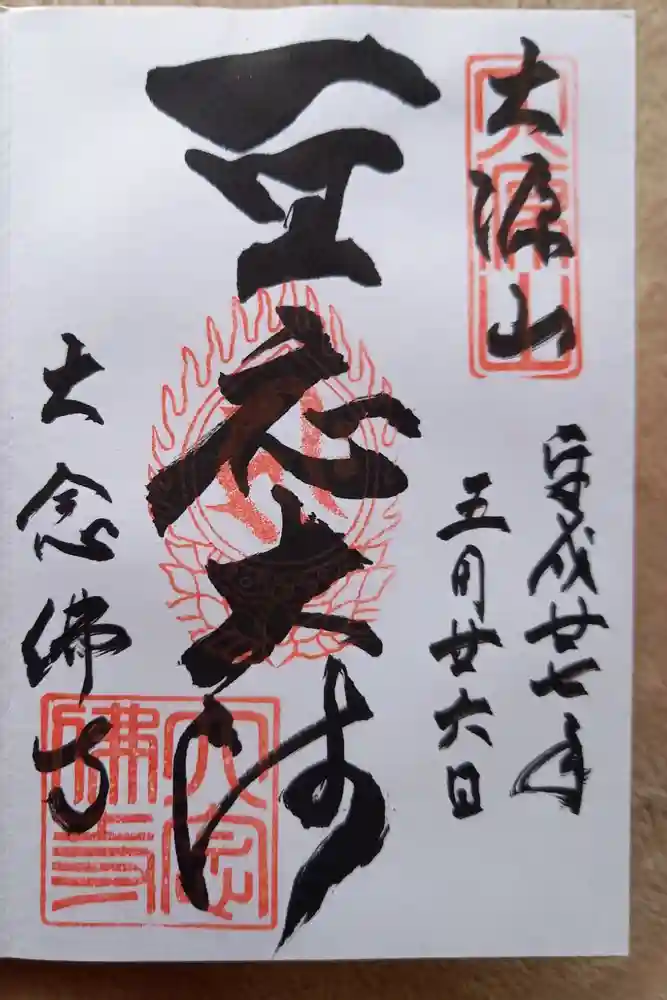 大源山
大源山
平成廿七年
五月廿六日
聖応大師
大念佛寺
大念
佛寺